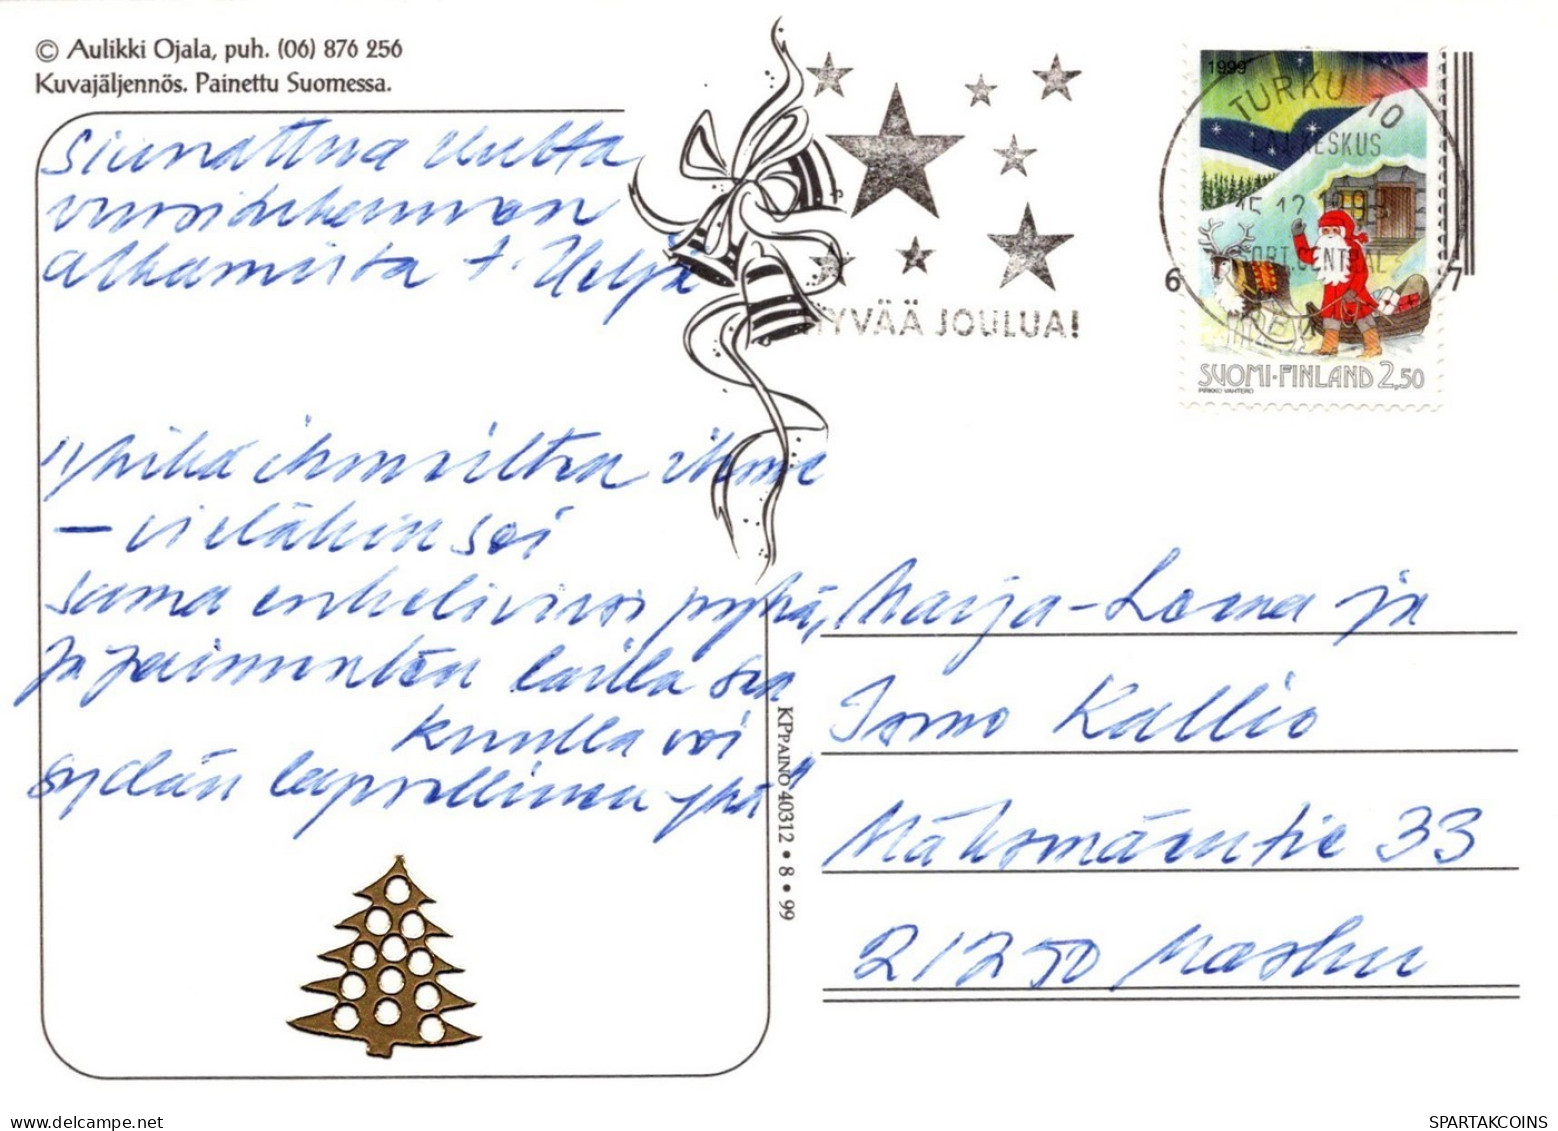 © Aulikki Ojala, puh. (06) 876 256
Kuvajäljennös. Painettu Suomessa.
Siunattua Uutta
vuosituhannen
alkamista t. Helje
HYVÄÄ JOULUA!
1999
TURKU 10
LAJ.KESKUS
15.12.
SORT.CENTRAL
ÅBO
6 7
SUOMI·FINLAND 2,50
PIRKKO VAHTERO
"Mikä ihmeiltten ihme
– vieläkin soi
sama enkelivirsi pyhä,
ja paimenten lailla sen
kuulla voi
sydän lapsellinen yhä"
KPPAINO 40312 • 8 • 99
Marja-Leena ja
Tarmo Kallio
Mäksmäentie 33
21250 Masku
SPARTAKCOINS